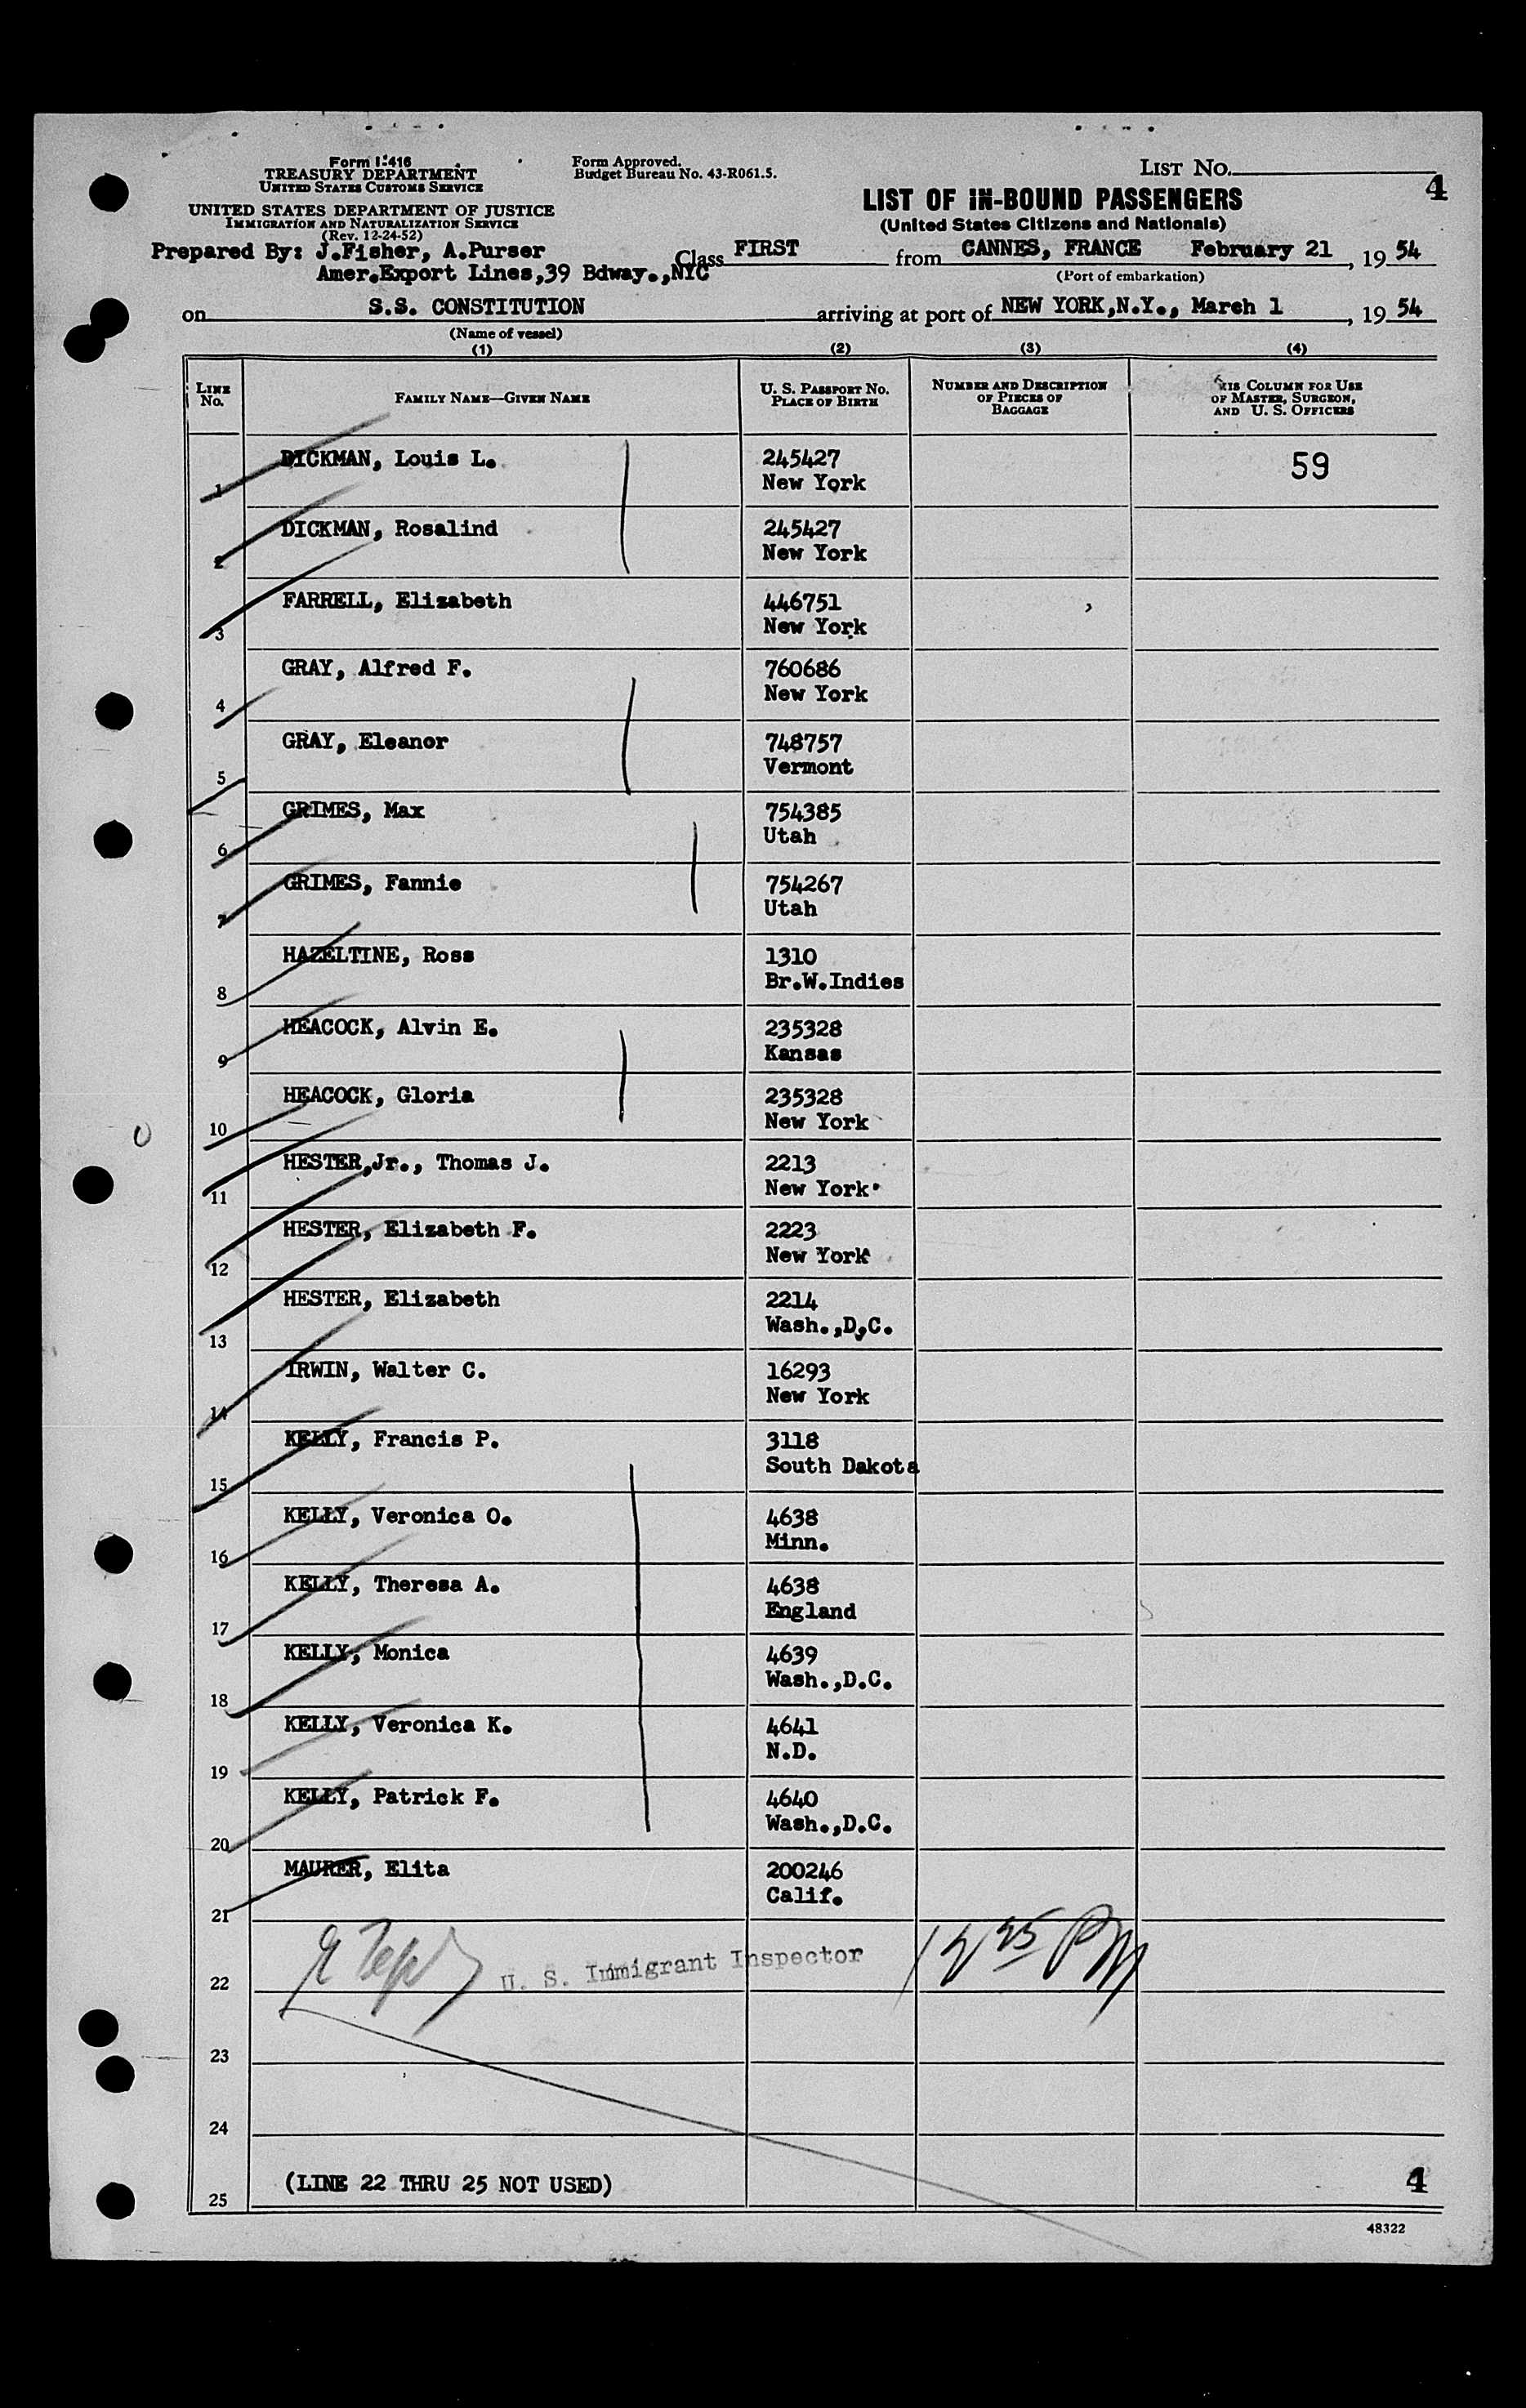 Form I-416
TREASURY DEPARTMENT
UNITED STATES CUSTOMS SERVICE
UNITED STATES DEPARTMENT OF JUSTICE
IMMIGRATION AND NATURALIZATION SERVICE
(Rev. 12-24-52)
Form Approved.
Budget Bureau No. 43-R061.5.
LIST No.
4
LIST OF IN-BOUND PASSENGERS
(United States Citizens and Nationals)
Prepared By: J.Fisher, A.Purser
Amer.Export Lines,39 Bdway.,NYC
Class FIRST from CANNES, FRANCE February 21, 19 54
(Port of embarkation)
on S.S. CONSTITUTION arriving at port of NEW YORK,N.Y., March 1, 19 54
(Name of vessel)
(1) (2) (3) (4)
LINE No.
FAMILY NAME—GIVEN NAME
U. S. PASSPORT No.
PLACE OF BIRTH
NUMBER AND DESCRIPTION OF PIECES OF BAGGAGE
THIS COLUMN FOR USE OF MASTER, SURGEON, AND U. S. OFFICERS
1 DICKMAN, Louis L. 245427 59
New York
2 DICKMAN, Rosalind 245427
New York
3 FARRELL, Elizabeth 446751
New York
4 GRAY, Alfred F. 760686
New York
5 GRAY, Eleanor 748757
Vermont
6 GRIMES, Max 754385
Utah
7 GRIMES, Fannie 754267
Utah
8 HAZELTINE, Ross 1310
Br.W.Indies
9 HEACOCK, Alvin E. 235328
Kansas
10 HEACOCK, Gloria 235328
New York
11 HESTER,Jr., Thomas J. 2213
New York
12 HESTER, Elizabeth F. 2223
New York
13 HESTER, Elizabeth 2214
Wash.,D.C.
14 IRWIN, Walter C. 16293
New York
15 KELLY, Francis P. 3118
South Dakota
16 KELLY, Veronica O. 4638
Minn.
17 KELLY, Theresa A. 4638
England
18 KELLY, Monica 4639
Wash.,D.C.
19 KELLY, Veronica K. 4641
N.D.
20 KELLY, Patrick F. 4640
Wash.,D.C.
21 MAURER, Elita 200246
Calif.
22 U. S. Immigrant Inspector 12 25 PM
23
24
25 (LINE 22 THRU 25 NOT USED) 4
48322